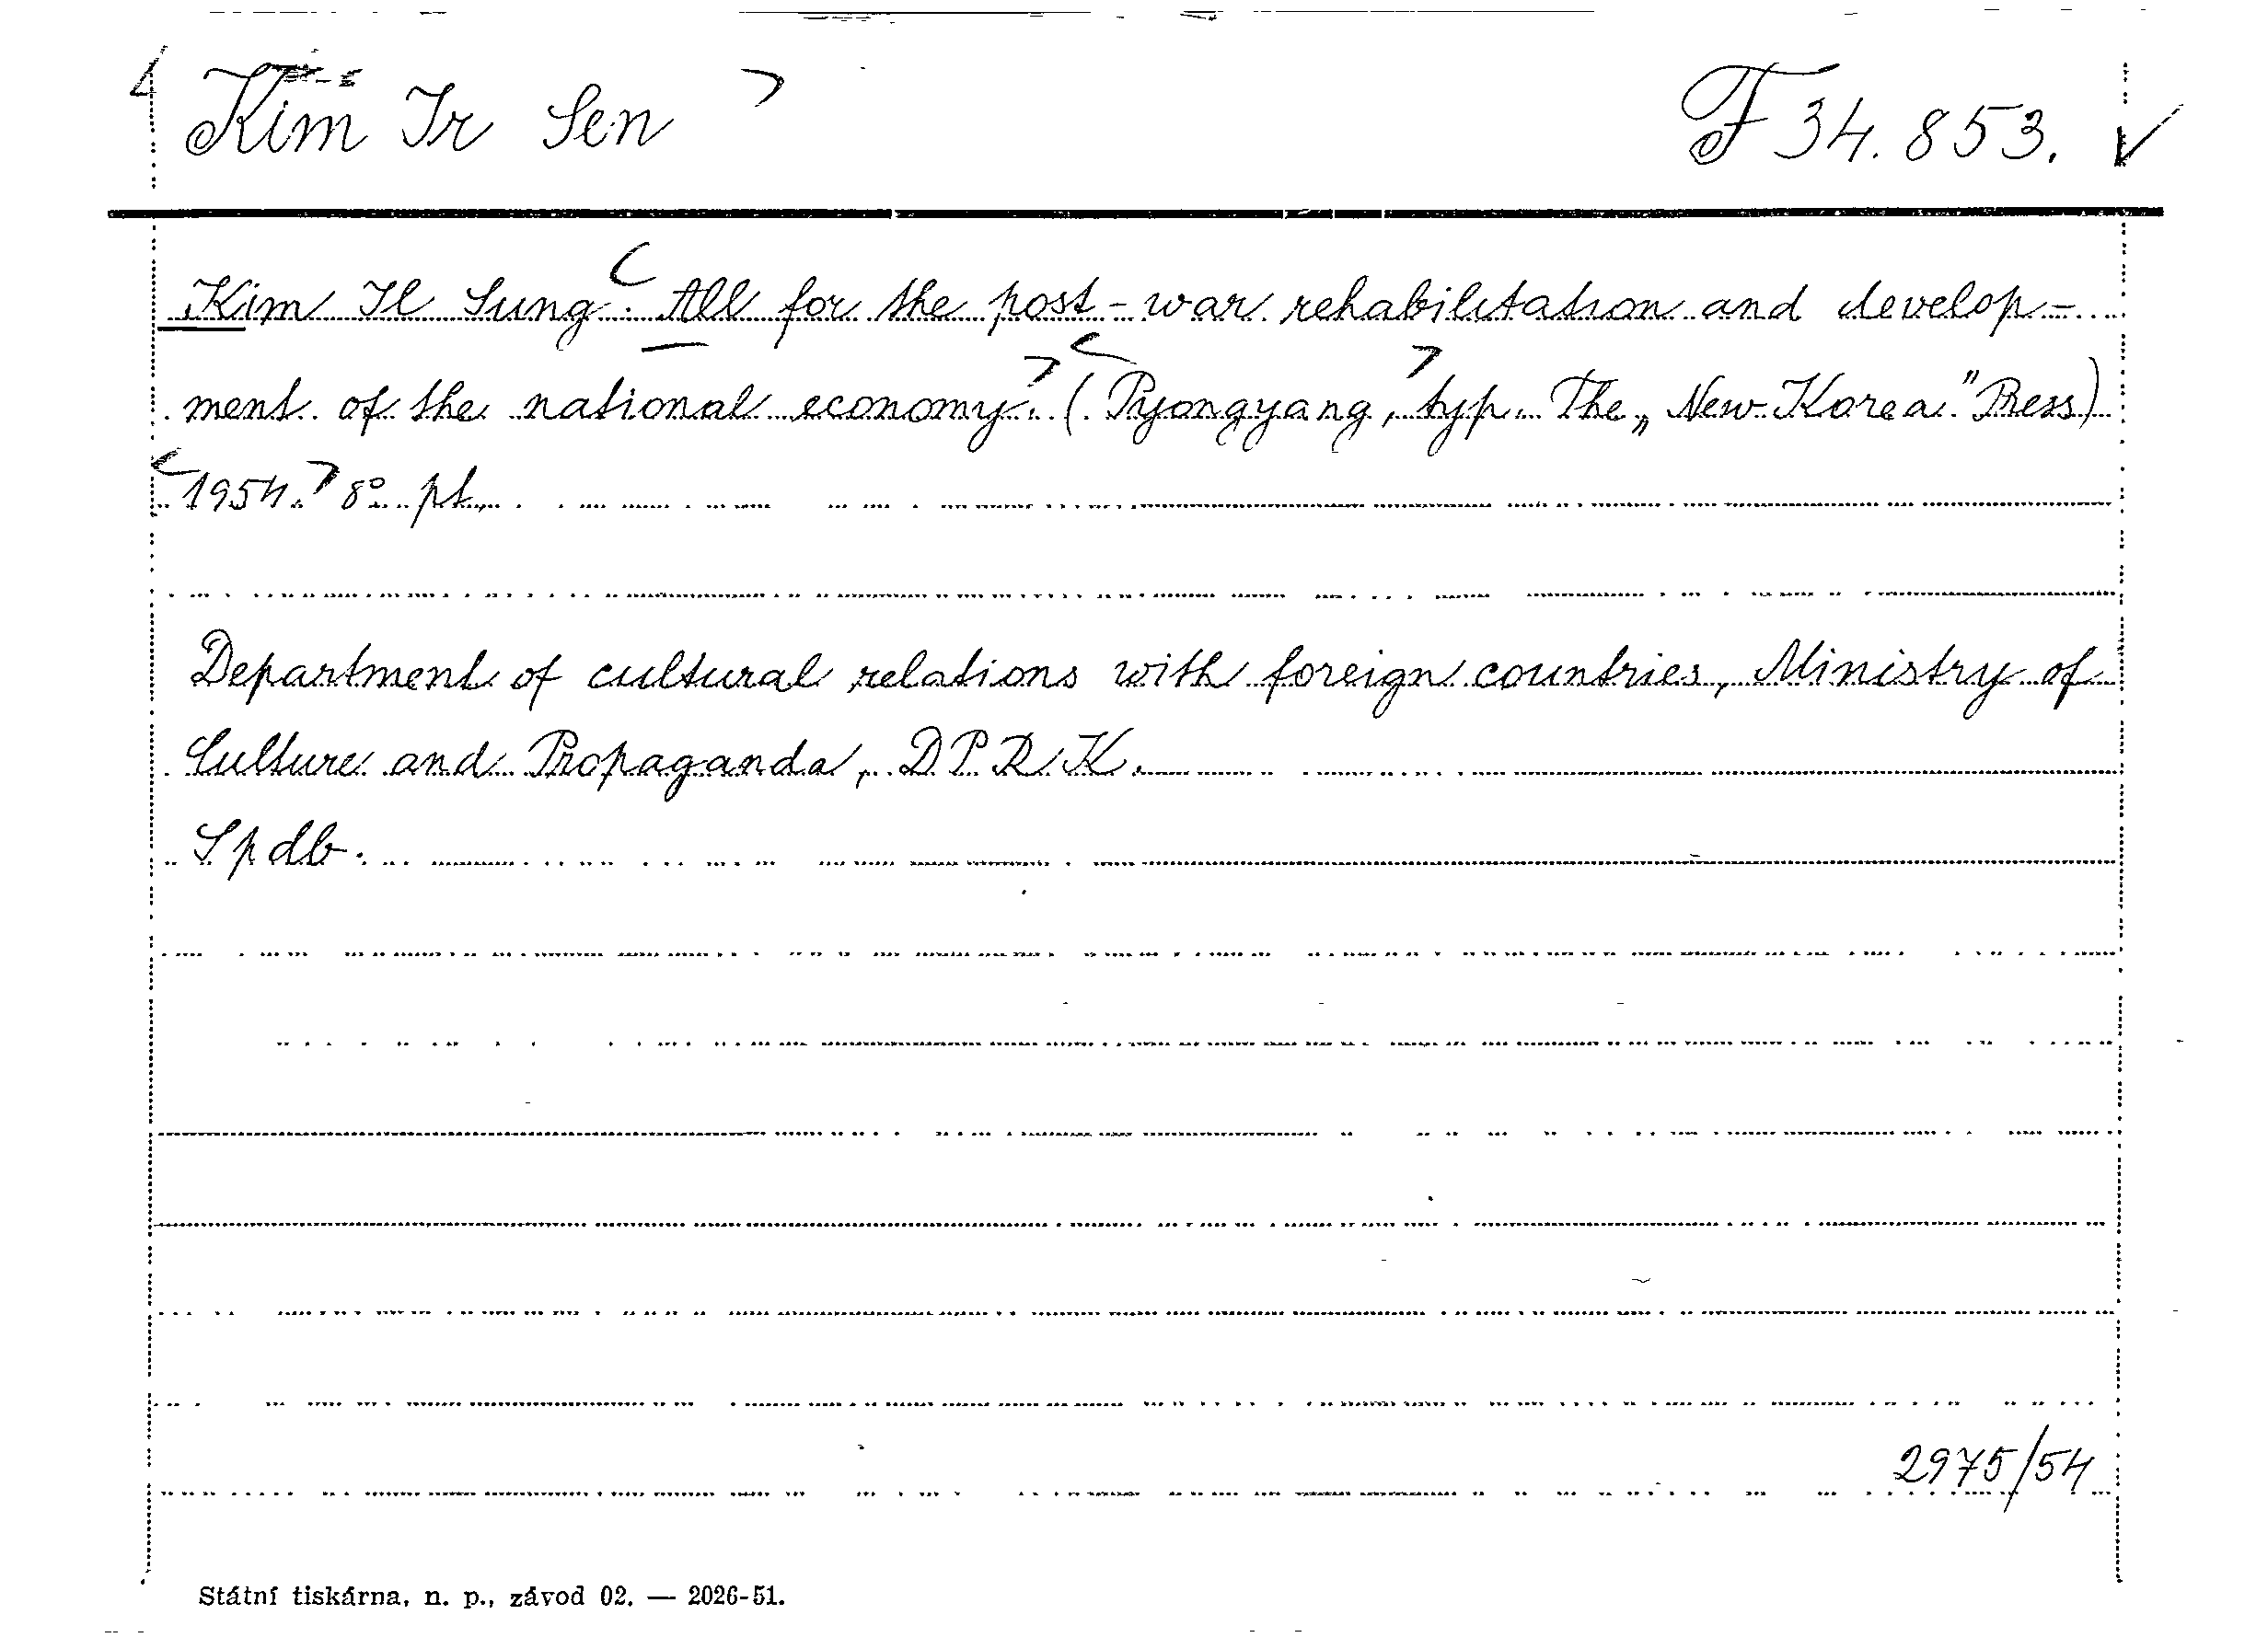 Kim Ir Sen F 34.853.
Kim Il Sung: All for the post-war rehabilitation and develop-
ment of the national economy. (Pyongyang, typ. The „New Korea" Press)
1954. 8° pt.
Department of cultural relations with foreign countries, Ministry of
Culture and Propaganda, DPRK.
Spdb.
2975/54
Státní tiskárna, n. p., závod 02. — 2026-51.